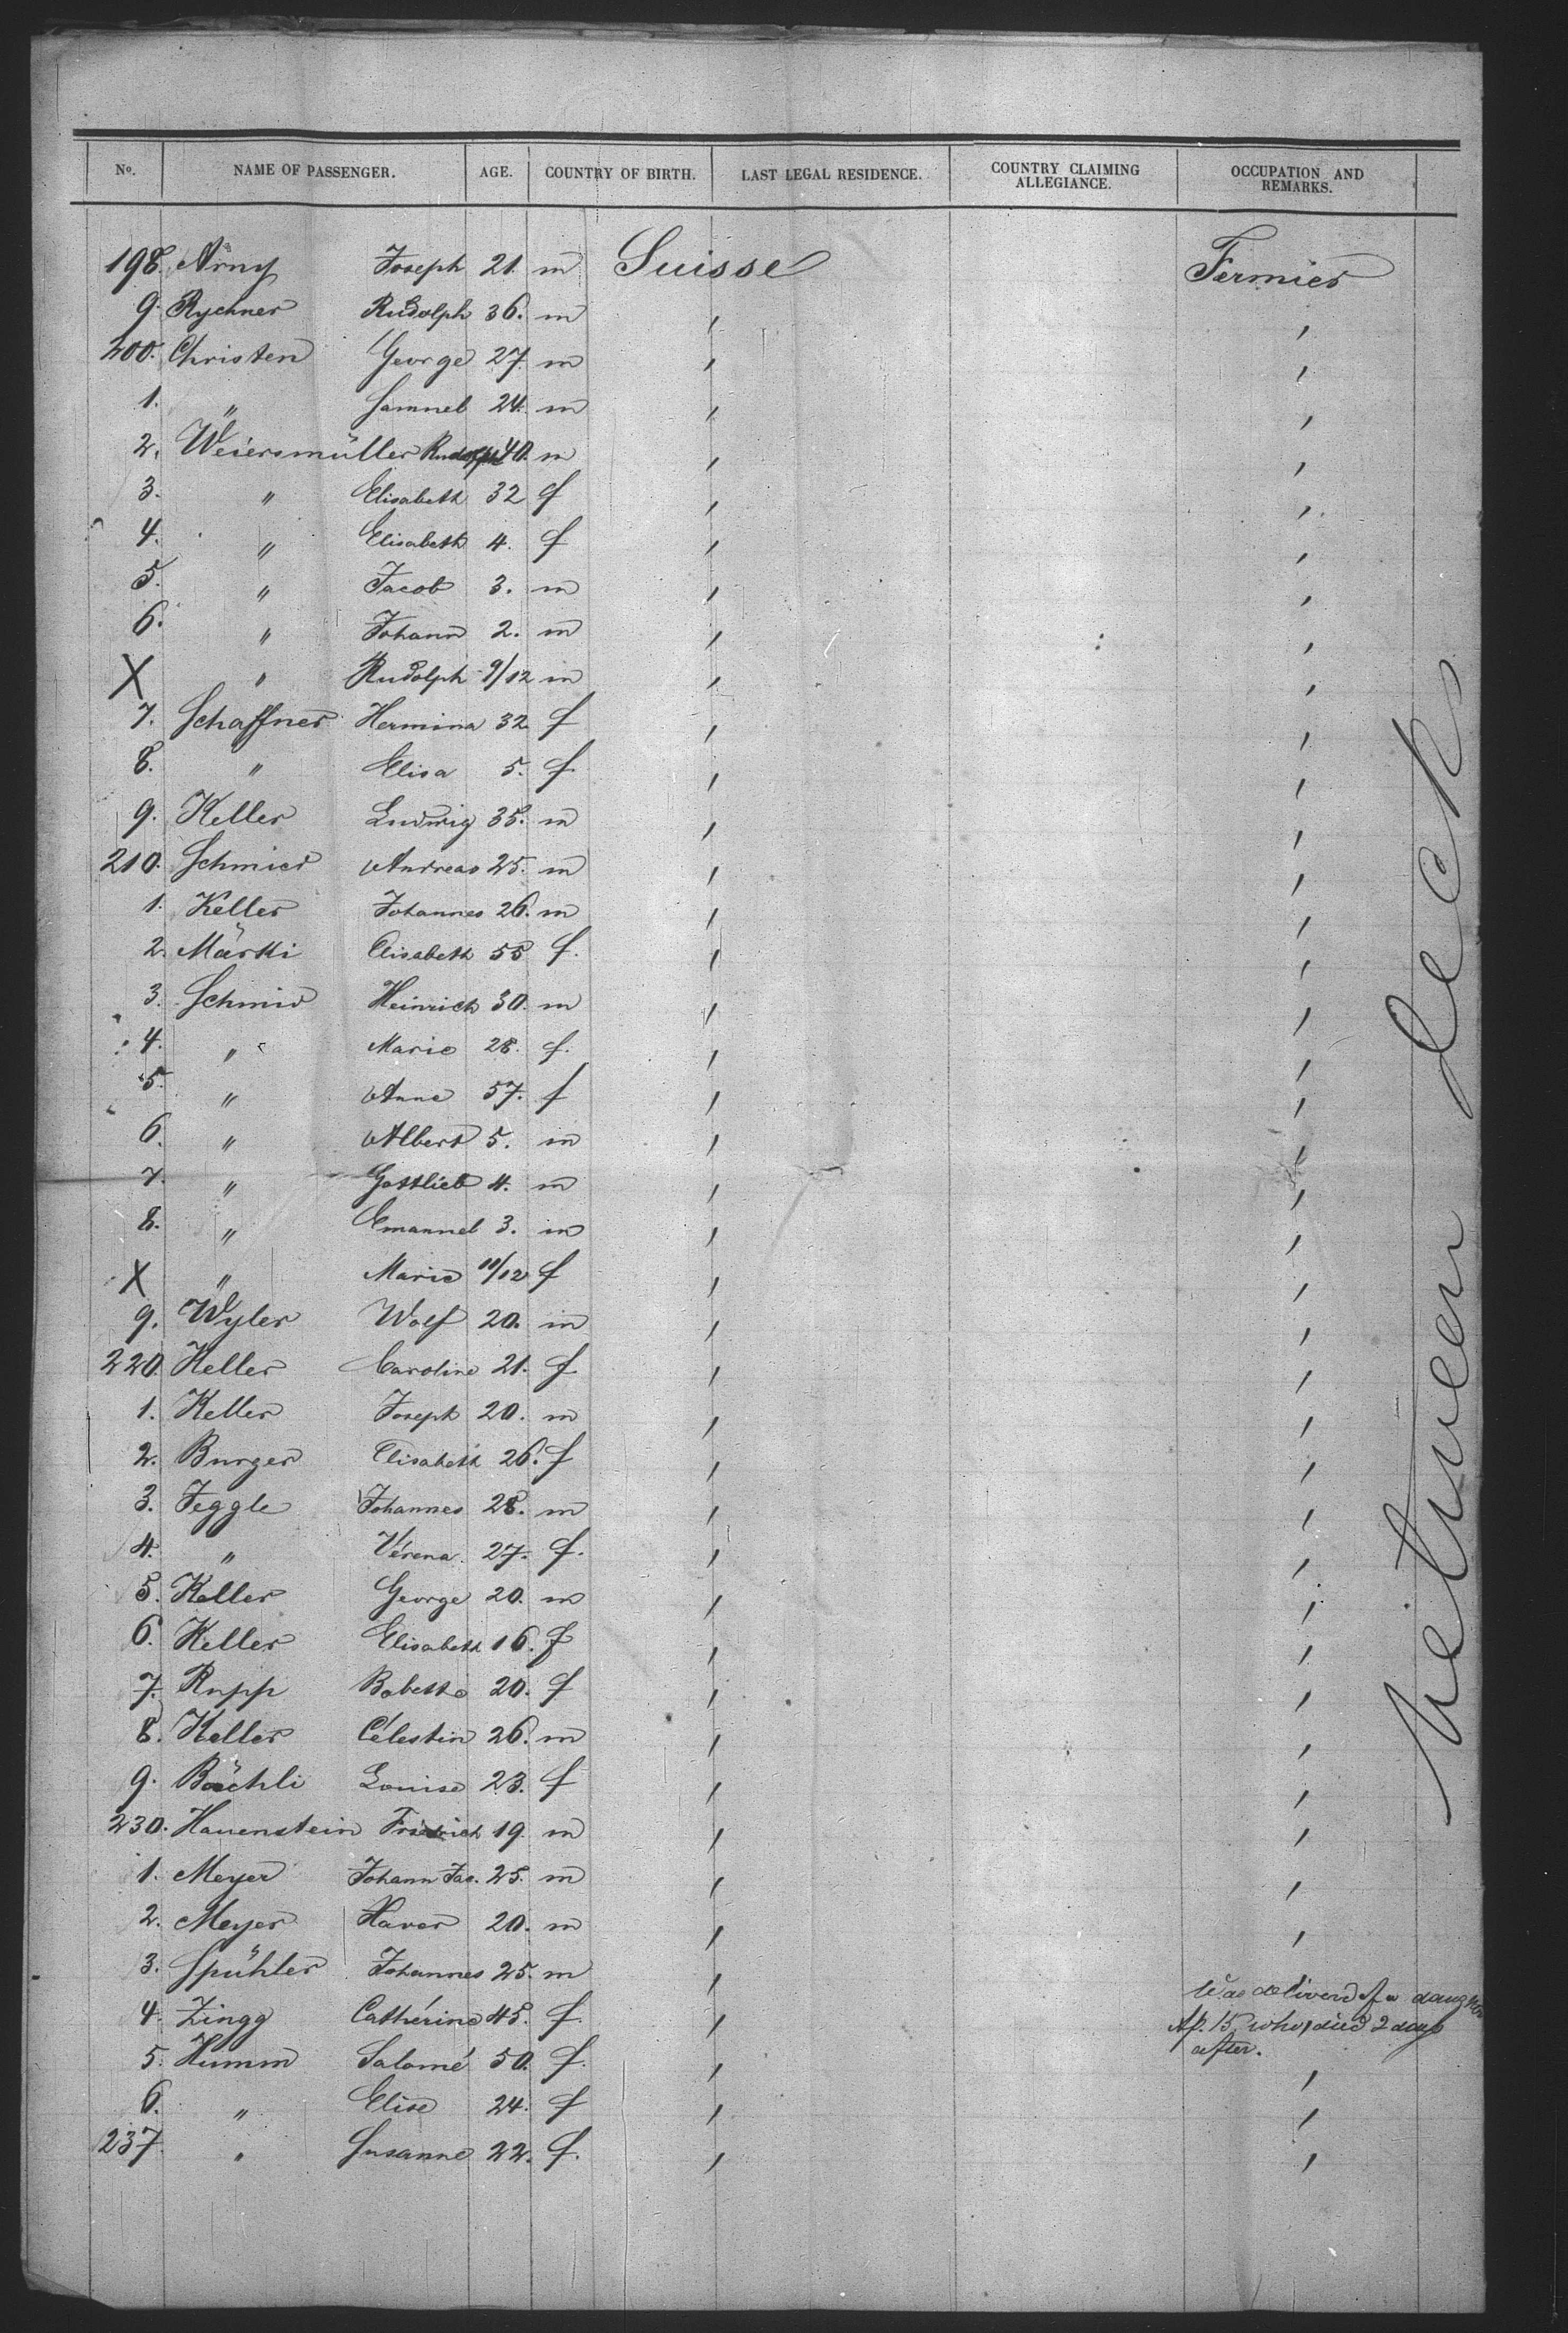 No. NAME OF PASSENGER. AGE. COUNTRY OF BIRTH. LAST LEGAL RESIDENCE. COUNTRY CLAIMING ALLEGIANCE. OCCUPATION AND REMARKS.
198. Arny Joseph 21. m Suisse Fermier
9. Rychner Rudolph 36. m " "
200. Christen George 27. m " "
1. " Samuel 24. m " "
2. Weiersmüller Rudolph 40. m " "
3. " Elisabeth 32 f " "
4. " Elisabeth 4. f " "
5. " Jacob 3. m " "
6. " Johann 2. m " "
X " Rudolph 9/12 m " "
7. Schaffner Hermina 32. f " "
8. " Elisa 5. f " "
9. Keller Ludwig 35. m " "
210. Schmied Andreas 25. m " "
1. Keller Johannes 26. m " "
2. Märki Elisabeth 55 f. " "
3. Schmid Heinrich 30. m " "
4. " Marie 28. f. " "
5. " Anna 57. f " "
6. " Albert 5. m " "
7. " Gottlieb 4. m " "
8. " Emanuel 3. m " "
X " Marie 10/12 f " "
9. Wyler Wolf 20. m " "
220. Keller Caroline 21. f " "
1. Keller Joseph 20. m " "
2. Burger Elisabeth 26. f " "
3. Jeggle Johannes 28. m " "
4. " Vérena 27. f. " "
5. Keller George 20. m " "
6. Keller Elisabeth 16. f " "
7. Rupp Babette 20. f " "
8. Keller Célestin 26. m " "
9. Bächli Louise 23. f " "
230. Hauenstein Friedrich 19. m " "
1. Meyer Johann Jac. 25. m " "
2. Meyer Xaver 20. m " "
3. Spühler Johannes 25. m "
4. Zingg Cathérine 45. f. " Was deliverd of a daughter
Ap. 15, who died 2 days
after.
5. Humm Salomé 50. f. " "
6. " Elise 24. f " "
237. " Susanne 22. f. " "
between decks